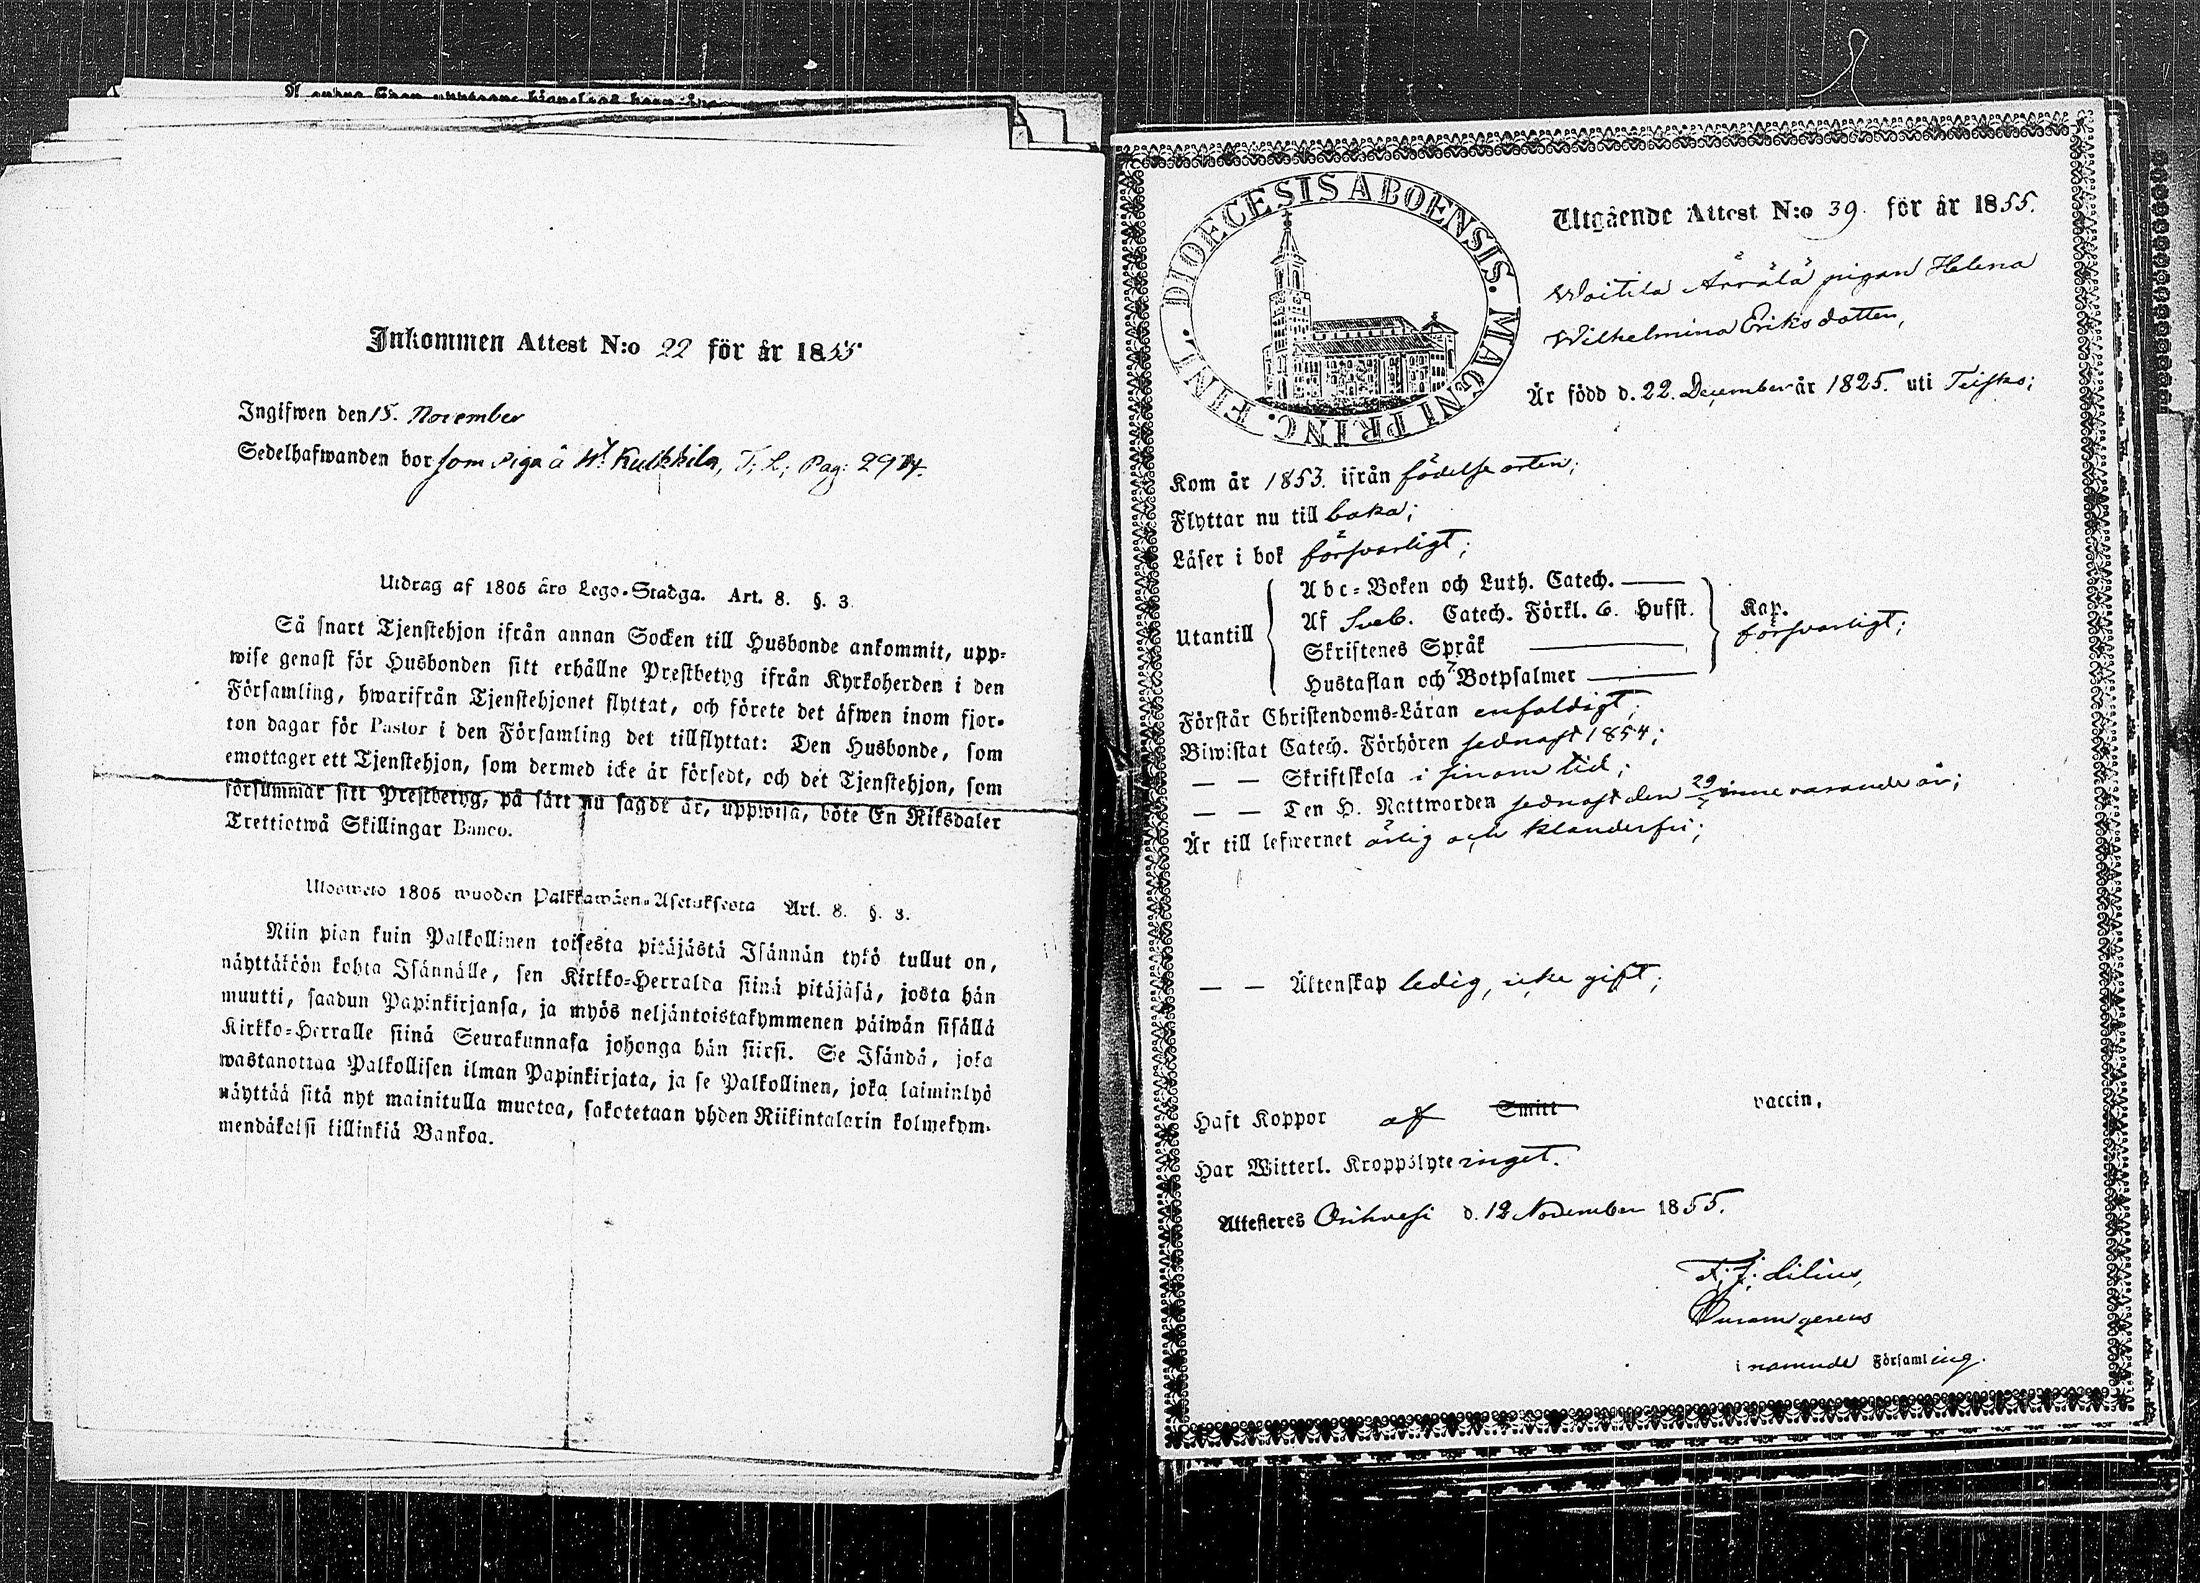 Inkommen Attest N:o 22 för år 1855
Ingifwen den 15. November
Sedelhafwanden bor som piga å W. Kulkkila, T. L. Pag: 294.
Utdrag af 1805 års Lego-Stadga. Art. 8. §. 3.
Så snart Tjenstehjon ifrån annan Socken till Husbonde ankommit, upp-
wise genast för Husbonden sitt erhållne Prestbetyg ifrån Kyrkoherden i den
Församling, hwarifrån Tjenstehjonet flyttat, och förete det äfwen inom fjor-
ton dagar för Pastor i den Församling det tillflyttat: Den Husbonde, som
emottager ett Tjenstehjon, som dermed icke är försedt, och det Tjenstehjon, som
försummar sitt Prestbetyg, på sätt nu sagdt är, uppwisa, böte En Riksdaler
Trettiotwå Skillingar Banco.
Ulosweto 1805 wuoden Palkkawäen-Asetuksesta Art. 8. §. 3.
Niin pian kuin Palkollinen toisesta pitäjästä Isännän tykö tullut on,
näyttäköön kohta Isännälle, sen Kirkko-Herralda siinä pitäjäsä, josta hän
muutti, saadun Papinkirjansa, ja myös neljäntoistakymmenen päiwän sisällä
Kirkko-Herralle siinä Seurakunnasa johonga hän siirsi. Se Isändä, joka
wastanottaa Palkollisen ilman Papinkirjata, ja se Palkollinen, joka laiminlyö
näyttää sitä nyt mainitulla muotoa, sakotetaan yhden Riikintalarin kolmekym-
mendäkaksi killinkiä Bankoa.
DIOECESIS ABOENSIS. MAGNI PRINC. FINL.
Utgående Attest N:o 39. för år 1855.
Woitila Ärrälä pigan Helena
Wilhelmina Eriksdotter,
Är född d. 22. December år 1825. uti Teisko;
Kom år 1853. ifrån födelse orten;
Flyttar nu till baka;
Läser i bok försvarligt;
Utantill
Abc-Boken och Luth. Catech. ——
Af Sveb. Catech. Förkl. 6. Hufst.
Skriftenes Språk ——
Hustaflan och 7 Botpsalmer ——
Kap.
försvarligt;
Förstår Christendoms-Läran enfaldigt;
Biwistat Catech. Förhören sednast 1854;
— — Skriftskola i sinom tid;
— — Den H. Nattwarden sednast den 29/7 innevarande år;
Är till lefwernet ärlig och klanderfri;
— — Äktenskap ledig, icke gift;
Haft Koppor af Smitt vaccin,
Har Witterl. Kroppslyte inget.
Attesteres Orihvesi d. 12 November 1855.
F. J. Lilius,
Curam gerens
i namnde Församling.